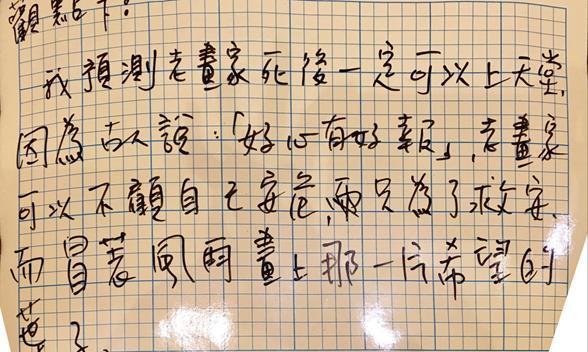 觀點下:
我預測老畫家死後一定可以上天堂,
因為古人說:「好心有好報」,老畫家
可以不顧自己安危,而只為了救安,
而冒著風雨畫上那一片希望的
葉子。